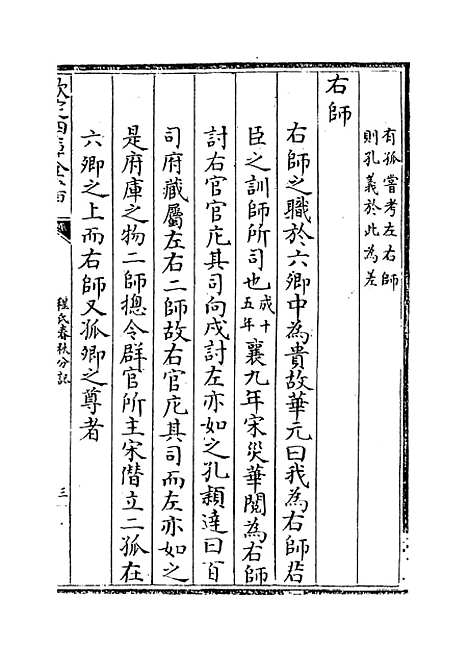 有孤嘗考左右師
則孔義於此為差
右師
右師之職於六卿中為貴故華元曰我為右師君
臣之訓師所司也成十五年襄九年宋災華閱為右師
討右官官庀其司向戌討左亦如之孔穎達曰百
司府藏屬左右二師故右官庀其司而左亦如之
是府庫之物二師摠令群官所主宋僭立二孤在
六卿之上而右師又孤卿之尊者
欽定四庫全書
程氏春秋分記
三